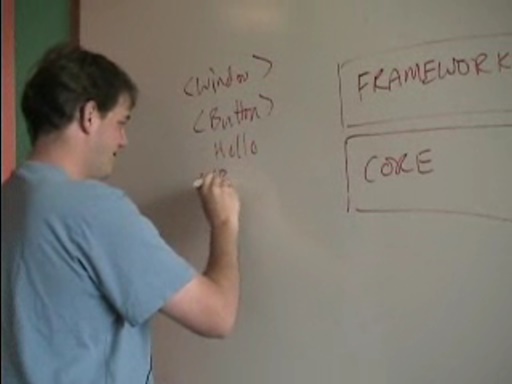 <Window>
<Button>
Hello
FRAMEWORK
CORE